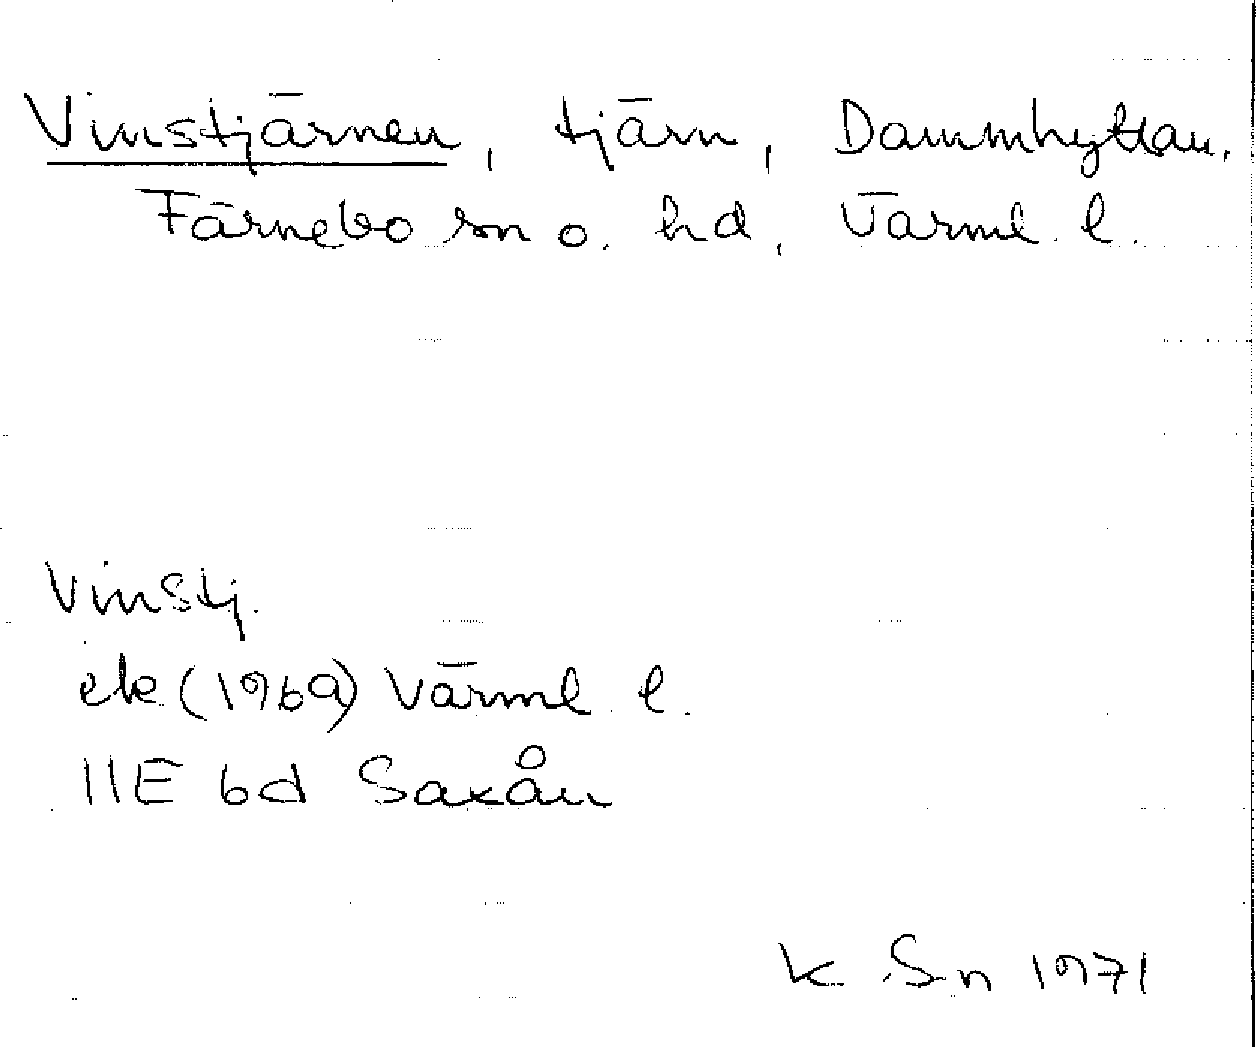 Vinstjärnen, tjärn, Dammhyttan,
Färnebo sn o. hd, Värml. l.
Vinstj.
ek (1969) Värml. l.
11E 6d Saxån
K Sn 1971